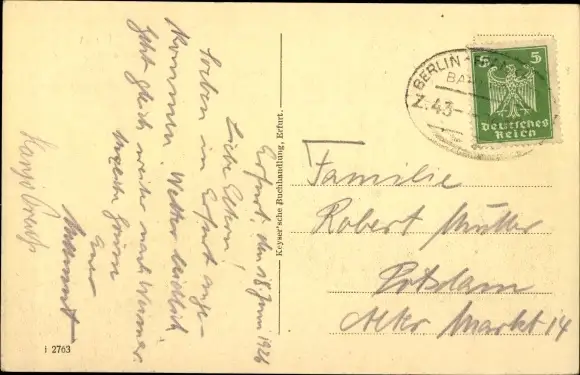 Erfurt, den 18. Juni 1926
Liebe Eltern!
Soeben in Erfurt ange-
kommen. Wetter leidlich
Fahrt gleich weiter nach
Herzliche Grüsse
Euer
Keyser'sche Buchhandlung, Erfurt.
BERLIN
BA
Z. 43
5 5
Deutsches
Reich
Familie
Robert Müller
Potsdam
Alter Markt 14
i 2763